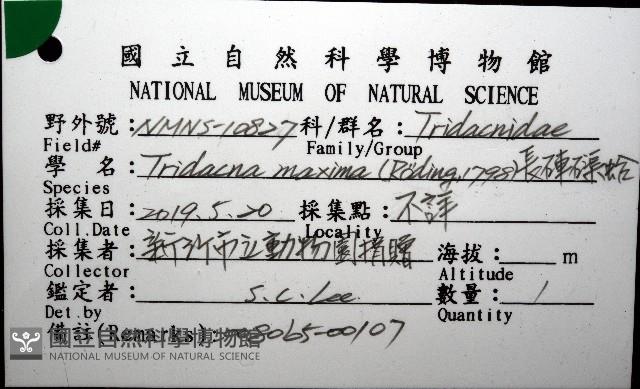 國立自然科學博物館
NATIONAL MUSEUM OF NATURAL SCIENCE
野外號：NMNS-10827 科/群名：Tridacnidae
Field# Family/Group
學 名：Tridacna maxima (Röding, 1798) 長硨磲蛤
Species
採集日：2019.5.20 採集點：不詳
Coll.Date Locality
採集者：新竹市立動物園捐贈 海拔：m
Collector Altitude
鑑定者：S.C. Lee 數量：1
Det.by Quantity
備註(Remarks)：008065-00107
國立自然科學博物館
NATIONAL MUSEUM OF NATURAL SCIENCE